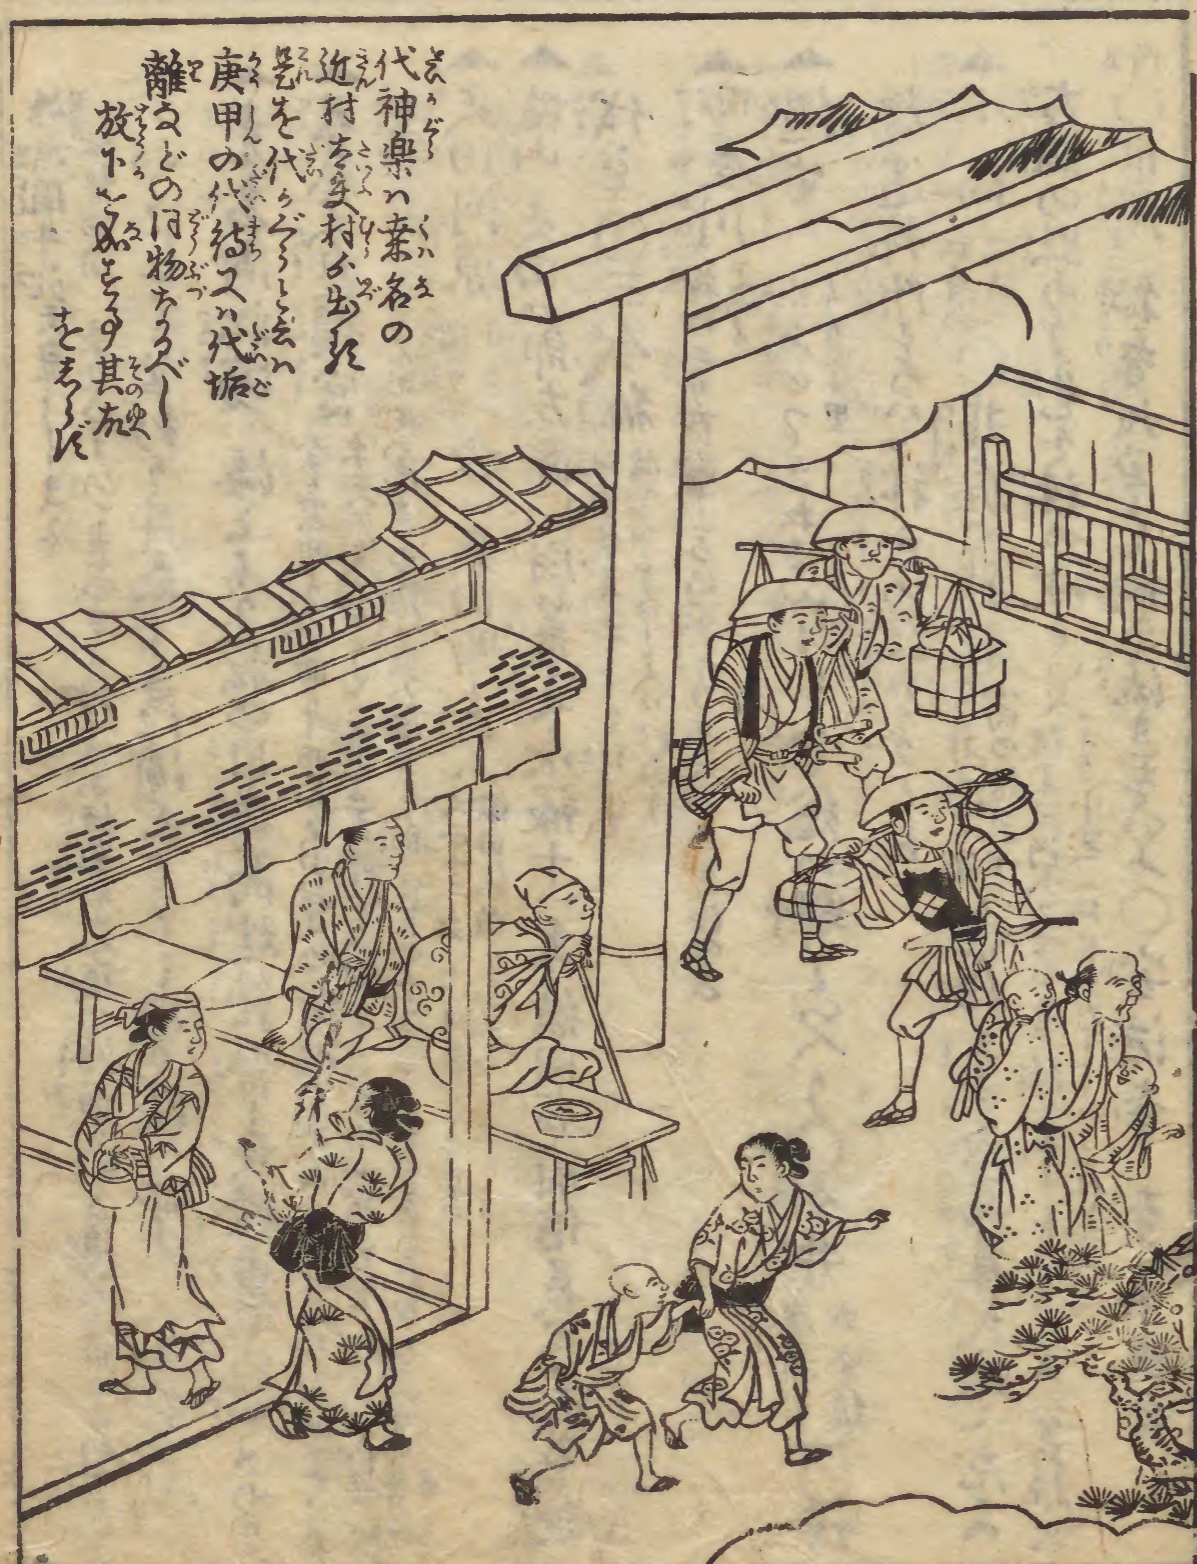 代神楽ハ桑名の
近村太夫村より出る
是を代かぐらと云ハ
庚申の代待又ハ代垢
離などの同物なるべし
放下をなす事其故
をしらず